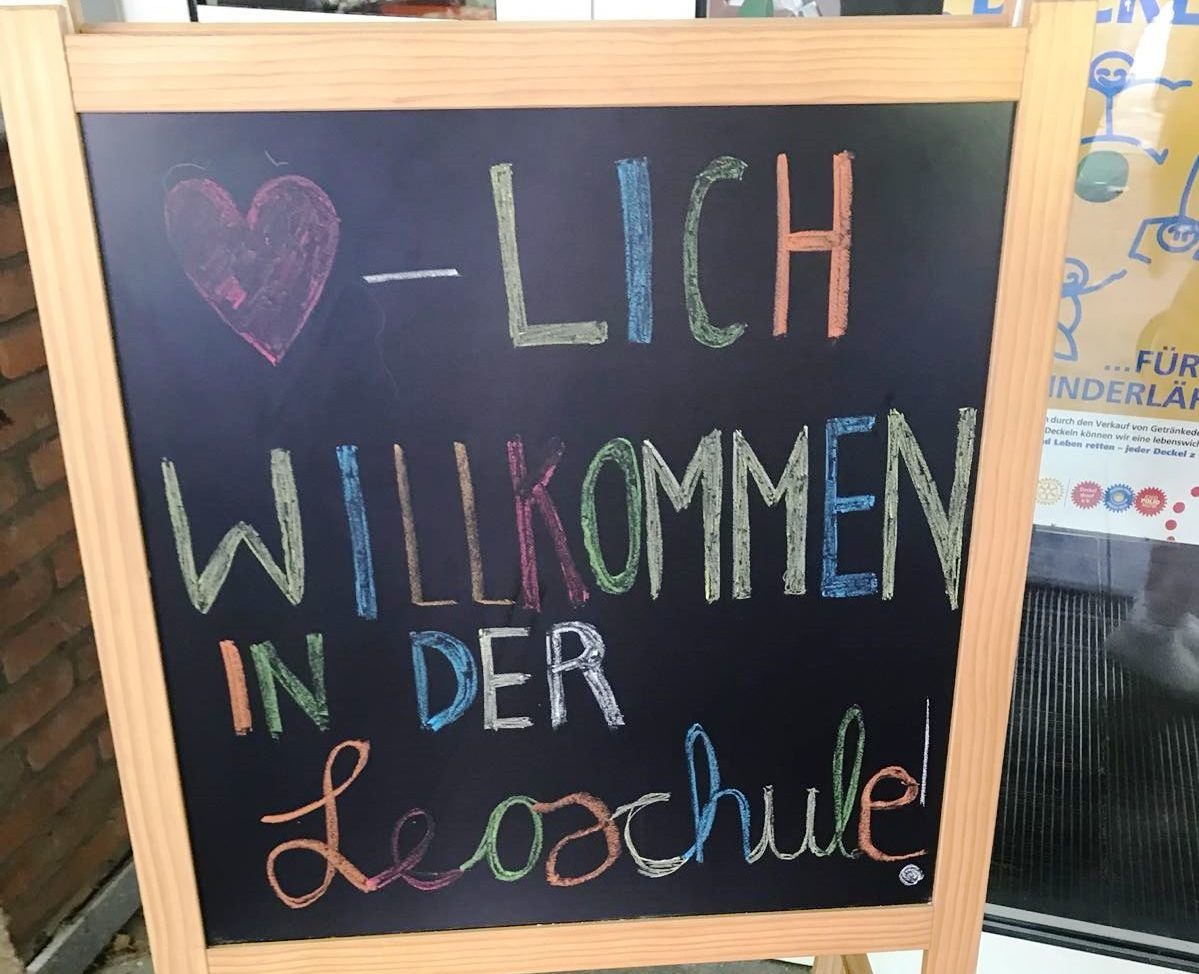 ♥-LICH
WILLKOMMEN
IN DER
Leoschule!
...FÜR
durch den Verkauf von
Deckeln können wir eine
Leben retten – jeder Deckel